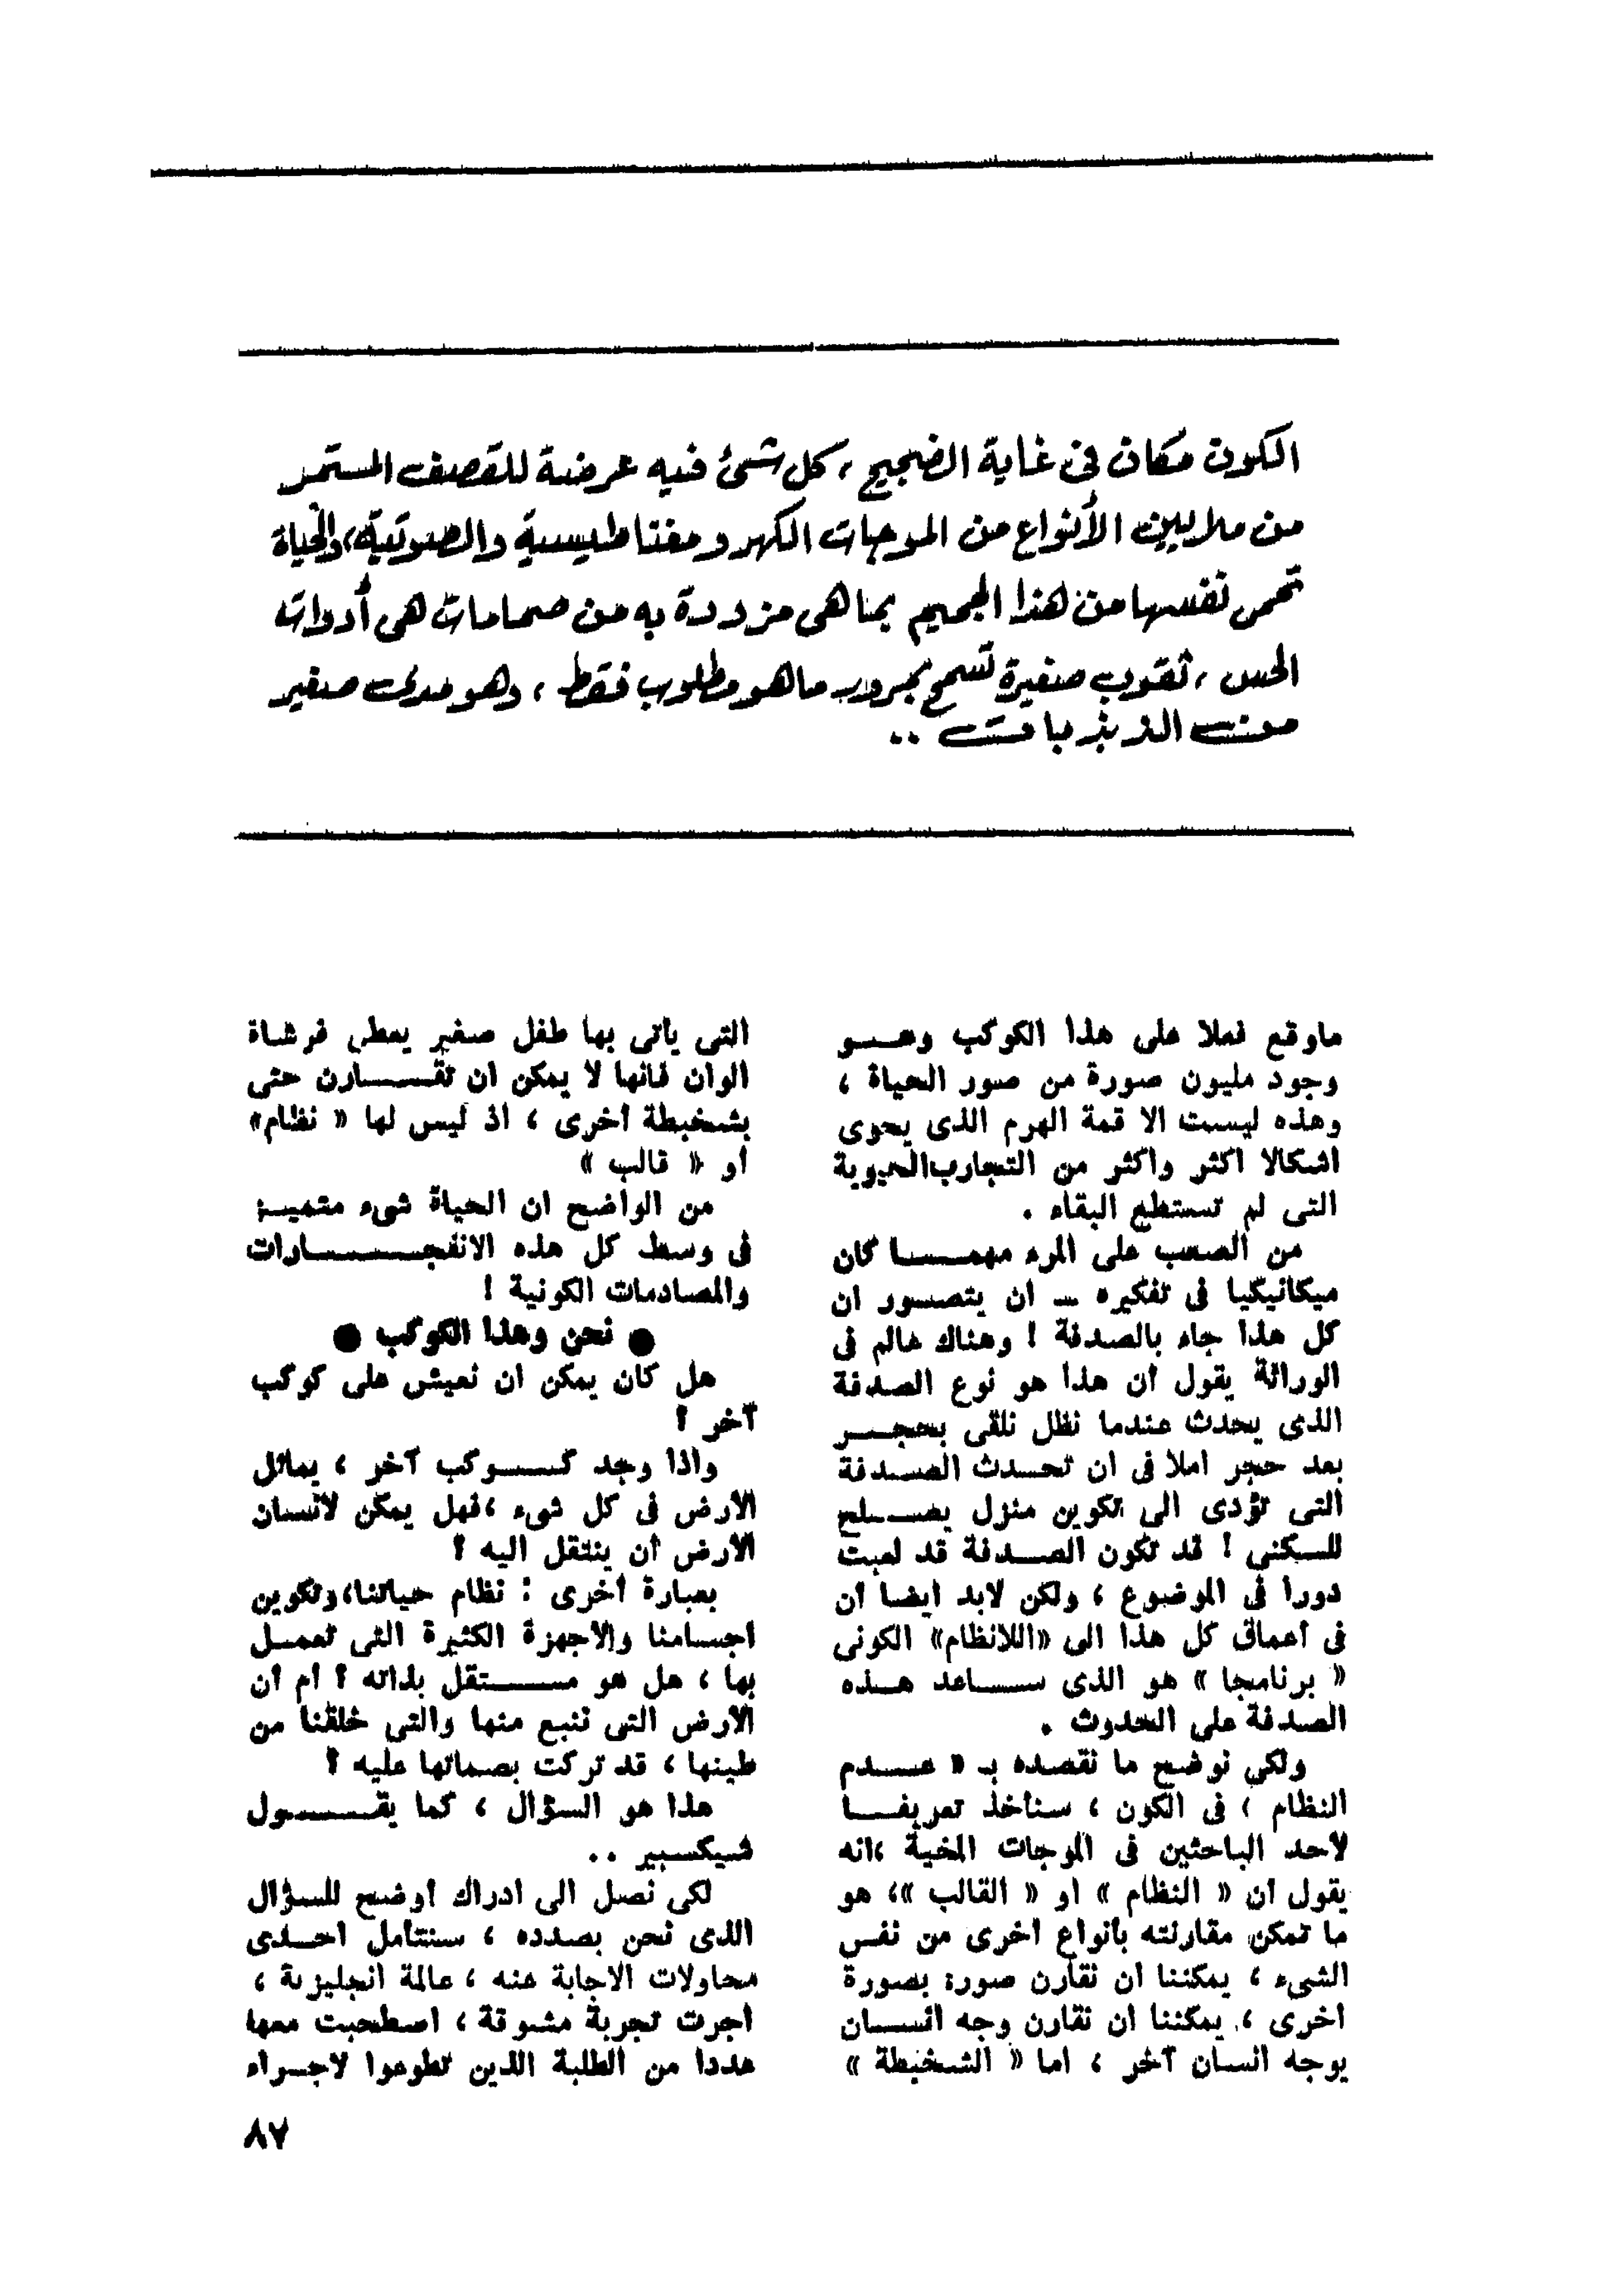 الكون مكان فى غاية الضجيج ، كل شئ فيه عرضة للقصف المستمر
من ملايين الأنواع من الموجات الكهرومغناطيسية والصوتية ، والحياة
تحمى نفسها من هذا الجحيم بما هى مزودة به من صمامات هى أدوات
الحس ، ثقوب صغيرة تسمح بمرور ما هو مطلوب فقط ، وهو مدى صغير
من الذبذبات ..
ماوقع فعلا على هذا الكوكب وهو
وجود مليون صورة من صور الحياة ،
وهذه ليست الا قمة الهرم الذى يحوى
اشكالا اكثر واكثر من التجارب الحيوية
التى لم تستطع البقاء .
من الصعب على المرء مهما كان
ميكانيكيا فى تفكيره — ان يتصور ان
كل هذا جاء بالصدفة ! وهناك عالم فى
الوراثة يقول ان هذا هو نوع الصدفة
الذى يحدث عندما نظل نلقى بحجر
بعد حجر املا فى ان تحدث الصدفة
التى تؤدى الى تكوين منزل يصلح
للسكنى ! قد تكون الصدفة قد لعبت
دورا فى الموضوع ، ولكن لابد ايضا ان
فى اعماق كل هذا الى «اللانظام» الكونى
« برنامجا » هو الذى ساعد هذه
الصدفة على الحدوث .
ولكى نوضح ما نقصده بـ « عدم
النظام » فى الكون ، سنأخذ تعريفا
لاحد الباحثين فى الموجات المخية ،انه
يقول ان « النظام » او « القالب »، هو
ما تمكن مقارنته بأنواع اخرى من نفس
الشىء ، يمكننا ان نقارن صورة بصورة
اخرى ، يمكننا ان نقارن وجه انسان
بوجه انسان آخر ، اما « الشخبطة »
التى ياتى بها طفل صغير يعطى فرشاة
الوان فانها لا يمكن ان تقارن حتى
بشخبطة اخرى ، اذ ليس لها « نظام»
او « قالب »
من الواضح ان الحياة شىء متميز
فى وسط كل هذه الانفجارات
والمصادمات الكونية !
● نحن وهذا الكوكب ●
هل كان يمكن ان نعيش على كوكب
آخر ؟
واذا وجد كوكب آخر ، يماثل
الارض فى كل شىء ،فهل يمكن لانسان
الارض ان ينتقل اليه ؟
بعبارة اخرى : نظام حياتنا،وتكوين
اجسامنا والاجهزة الكثيرة التى تعمل
بها ، هل هو مستقل بذاته ؟ ام ان
الارض التى ننبع منها والتى خلقنا من
طينها ، قد تركت بصماتها عليه ؟
هذا هو السؤال ، كما يقول
شيكسبير ..
لكى نصل الى ادراك اوضح للسؤال
الذى نحن بصدده ، سنتأمل احدى
محاولات الاجابة عنه ، عالمة انجليزية ،
اجرت تجربة مشوقة ، اصطحبت معها
عددا من الطلبة الذين تطوعوا لاجراء
٨٧